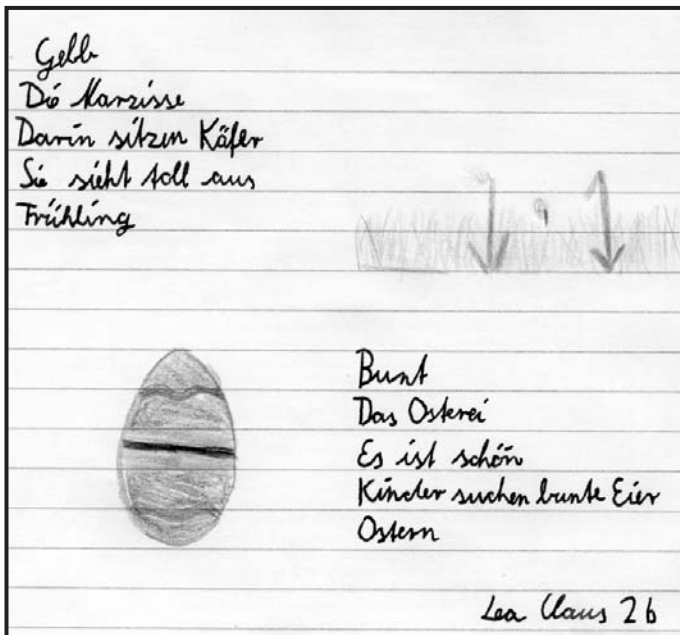 Gelb
Die Narzisse
Darin sitzen Käfer
Sie sieht toll aus
Frühling
Bunt
Das Osterei
Es ist schön
Kinder suchen bunte Eier
Ostern
Lea Claus 2b